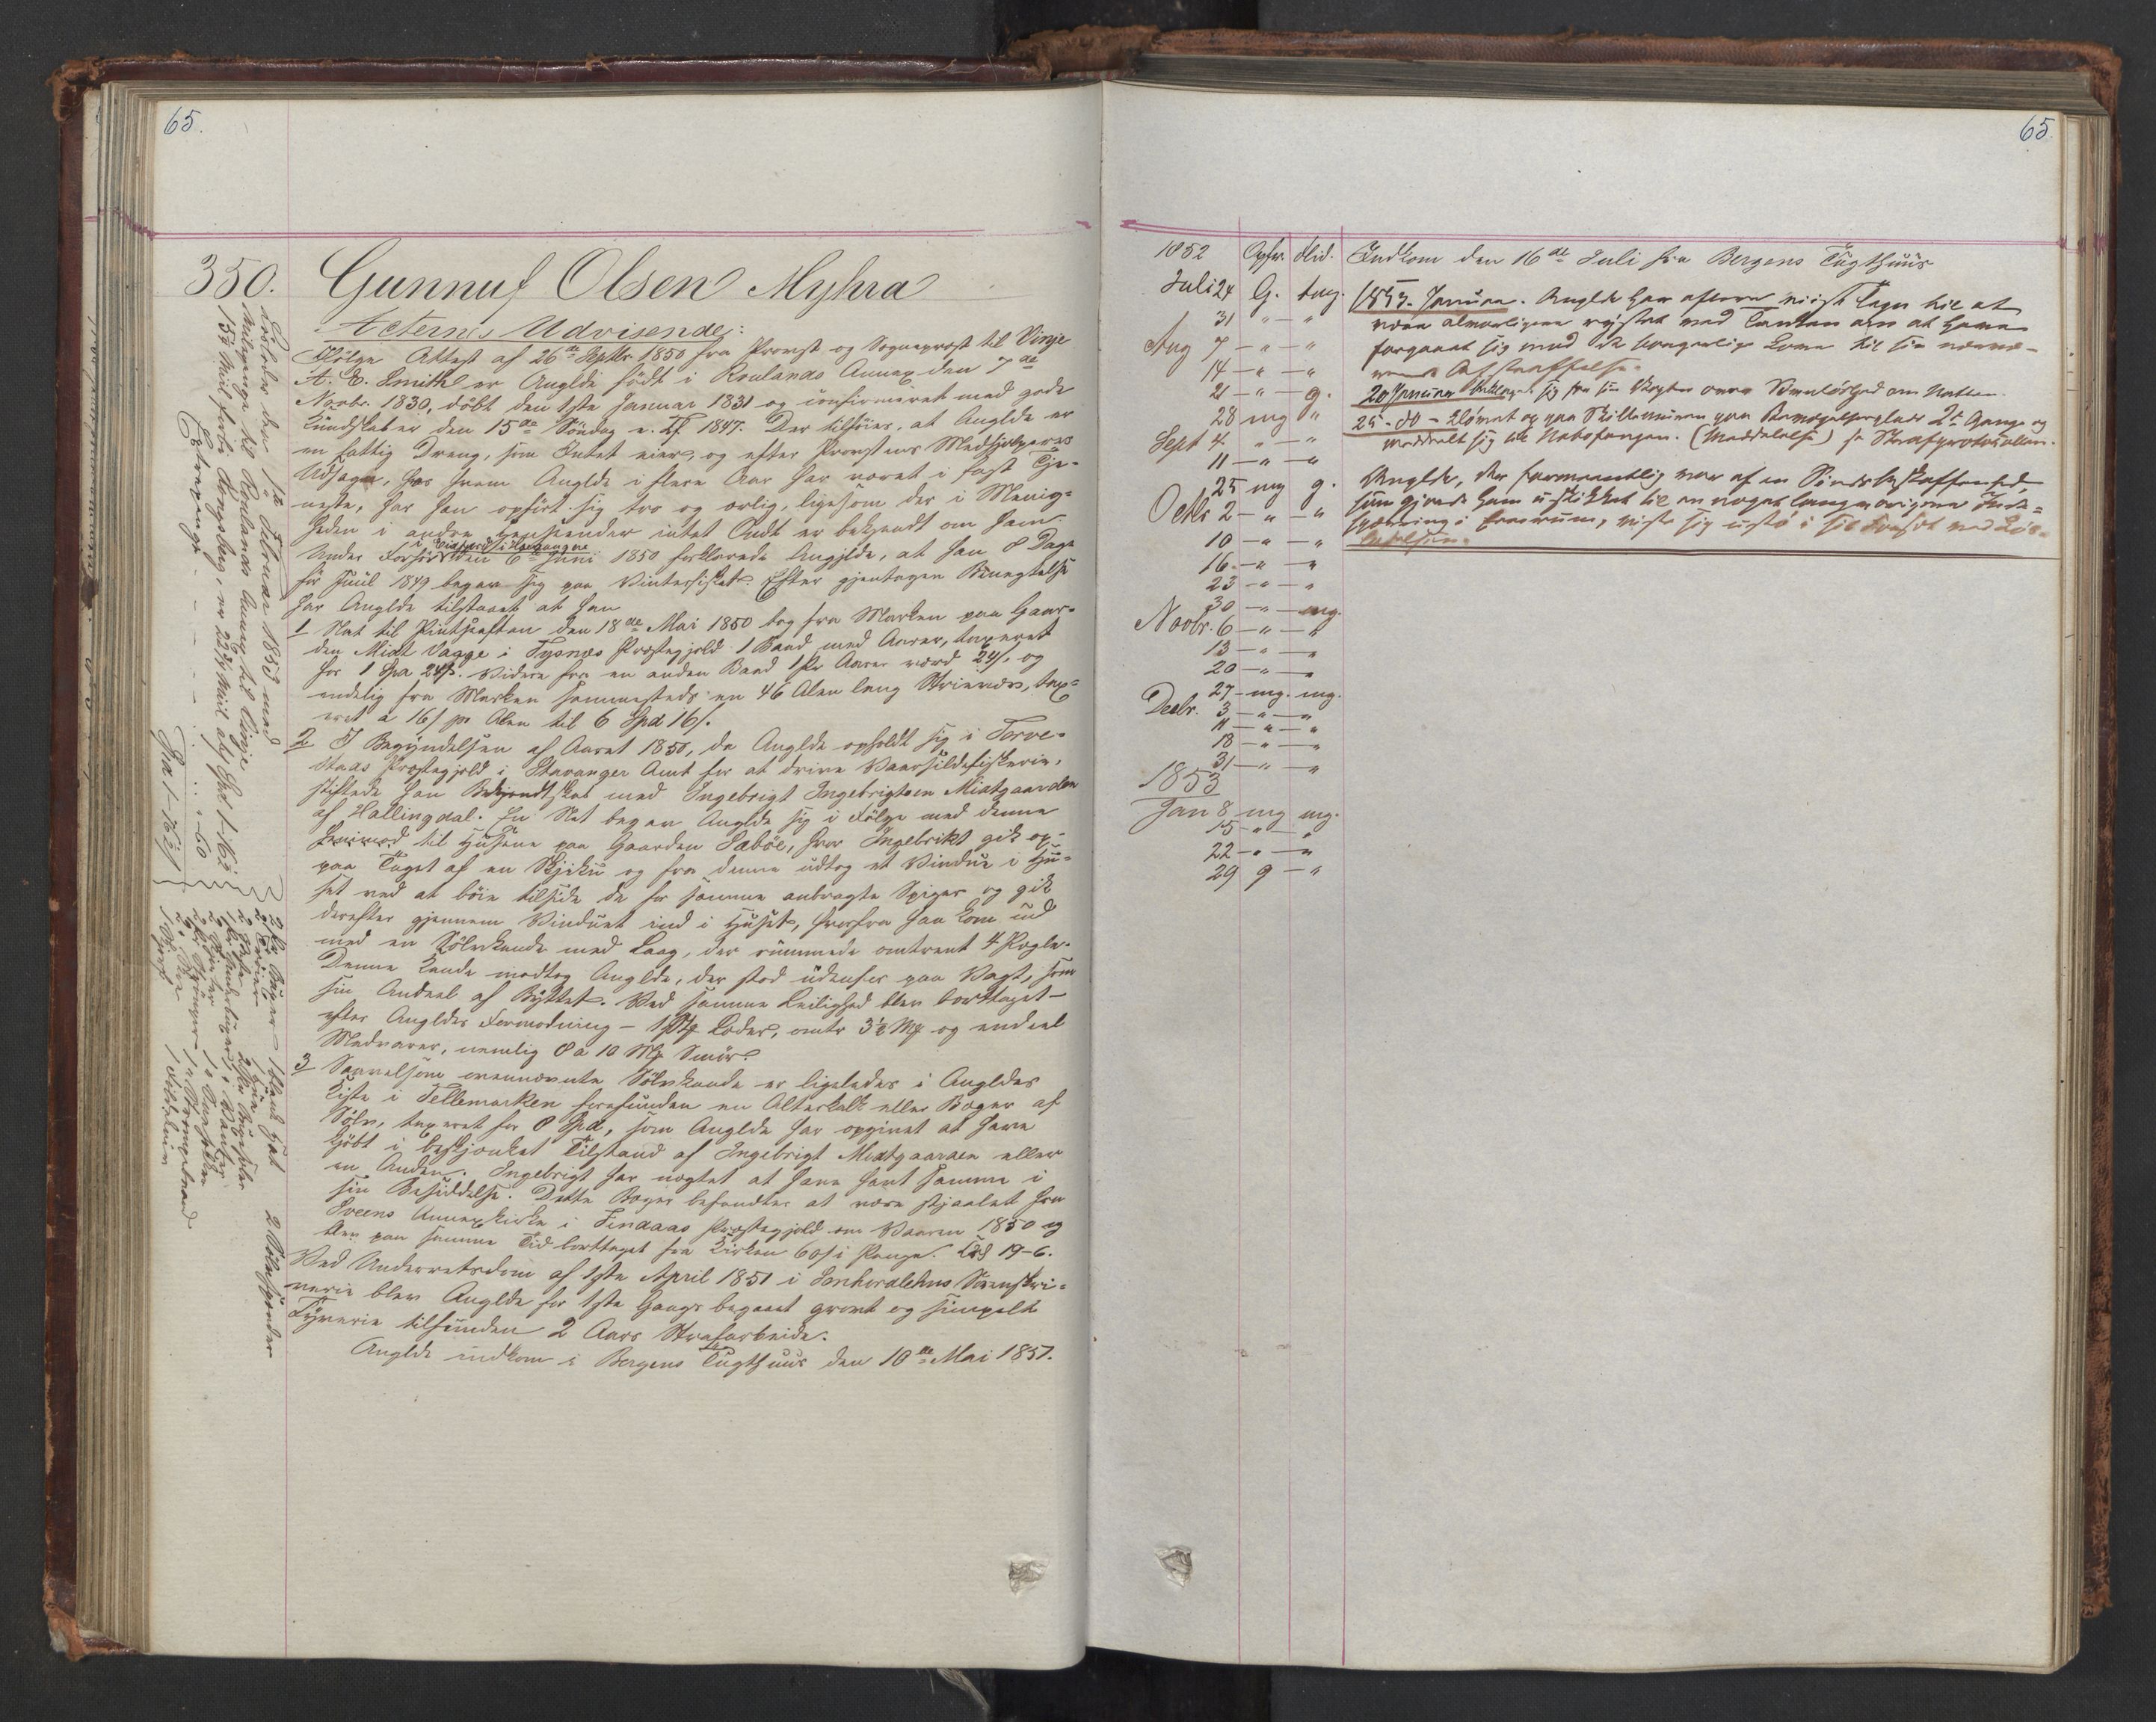 65.
350.
Gunnuf Olsen Myhra
Acternes Udvisende:
Ifölge Attest af 26de Septbr. 1850 fra Provst og Sognepræst til Vinje
A. E. Smith er Angldе födt i Roulands Annex den 7de
Novbr. 1830, döbt den 1ste Januar 1831 og confirmeret med gode
Kundskaber den 15de Söndag e. Tf. 1847. Der tilföies, at Anglde er
en fattig Dreng, som Intet eier, og efter Provstens Medhjelperes
Udsagn, hos hvem Anglde i flere Aar har været i fast Tje-
neste, har han opfört sig tro og ærlig, ligesom der i Menig-
heden i andre Henseender intet Ondt er bekjendt om ham.
Under Forhör den 6te Juni 1850 forklarede Anglde, at han 8 Dage
för Juul 1849 begav sig paa Vinterfisket. Efter gjentagen Benegtelse
har Anglde tilstaaet at han
1 Nat til Pintseaften den 18de Mai 1850 tog fra Marken paa Gaar-
den Midt Vagge i Tysnes Præstegjeld 1 Baad med Aarer, taxeret
for 1 Spd 24s. Videre fra en anden Baad 1 Pr Aarer værd 24s. og
endelig fra Marken sammesteds en 46 Alen lang Strie, tax-
eret a 16s pr Alen til 6 Spd 16s.
2 I Begyndelsen af Aaret 1850, da Anglde opholdt sig i Torve-
stads Præstegjeld i Stavanger Amt for at drive Vaarsildefiskerie,
stiftede han Bekjendtskab med Ingebrigt Ingebrigtsen Midtgaarden
af Hallingdal. En Nat begav Anglde sig i Fölge med denne
til Husene paa Gaarden Sæböe, hvor Ingebrikt gik op
paa Taget af en Skjeku og fra denne udtog et Vindue i Hu-
set ved at böie tilside de for samme anbragte Spiger og gik
derefter gjennem Vinduet ind i Huset, hvorfra han kom ud
med en Sölvkande med Laag, der rummede omtrent 4 Pægle.
Denne Kande modtog Anglde, der stod udenfor paa Vagt, som
sin Andeel af Byttet. Ved samme Leilighed blev borttaget —
efter Angldes Formodning — 1 Læder, omtr 3½ Mk og endeel
Madvarer, nemlig 8 a 10 Mk Smör.
3 Saavelsom ovennævnte Sölvkande er ligeledes i Angldes
Kiste i Tellemarken forefunden en Alterkalk eller Bæger af
Sölv, taxeret for 8 Spd, som Anglde har opgivet at have
kjöbt i beskjenket Tilstand af Ingebrigt Midtgaarden eller
en Anden. Ingebrigt har nægtet at have havt samme i
sin Besiddelse. Dette Bæger befandtes at være stjaalet fra
Sveens Annexkirke i Findaas Præstegjeld om Vaaren 1850 og
blev paa samme Tid borttaget fra Kirken 60s i Penge. 19-6.
Ved Underretsdom af 1ste April 1851 i Söndhordlehns Sorenskri-
verie blev Anglde for 1ste Gangs begaaet grovt og simpelt
Tyverie tilfunden 2 Aars Strafarbeide.
Anglde indkom i Bergens Tugthuus den 10de Mai 1851.
Löslades den 1ste Februar 1853 med
Milepenge til Roulands Annex til Vinje
15½ Miil forbi Kongsberg, er 22¾ Miil a 8s Spd 1-62
Extrapenge - - - - 60
Spd 1-
65.
1852 Opför. Flid.
Juli 24 G. mg.
31 — " — "
Aug 7 — " — "
14 — " — "
21 — " — g.
28 mg "
Sept 4. — " — "
11 — " — "
25 mg g.
Octbr 2 — " — "
10 — " — "
16 — " — "
23 — " — "
30 — " — mg.
Novbr. 6 — " — "
13 — " — "
20 — " — "
27 — mg. mg.
Decbr. 3 — " — "
11 — " — "
18 — " — "
31 — " — "
1853
Jan 8 mg mg.
15 — " — "
22 — " — "
29 g — "
Indkom den 16de Juli fra Bergens Tugthuus
1853. Januar. Anglde har oftere viist Tegn til at
være alvorligen rystet ved Tanken om at have
forgaaet sig mod de borgerlige Love til sin nærvæ-
rende Afstraffelse.
20 Januar beklager sig for sin over Sövnlöshed om Natten.
25. do - paa Skillemuren paa 2de Gange og
meddeelt sig til Nabofangen. (Meddelelse) se Strafprotocollen.
Anglde, der formeentlig var af en Sindsbeskaffenhed,
som gjorde ham uskikket til en noget langvarigere Ind-
spærring i Eenrum, viste sig ved Lös-
ladelsen.